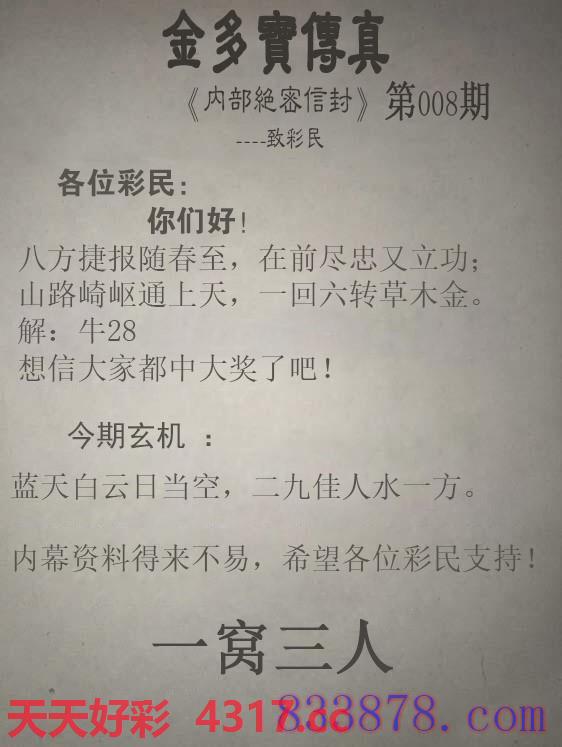 金多寶傳真
《内部絕密信封》第008期
----致彩民
各位彩民：
你们好！
八方捷报随春至，在前尽忠又立功；
山路崎岖通上天，一回六转草木金。
解：牛28
想信大家都中大奖了吧！
今期玄机 ：
蓝天白云日当空，二九佳人水一方。
内幕资料得来不易，希望各位彩民支持！
一窝三人
天天好彩 4317.cc 833878.com